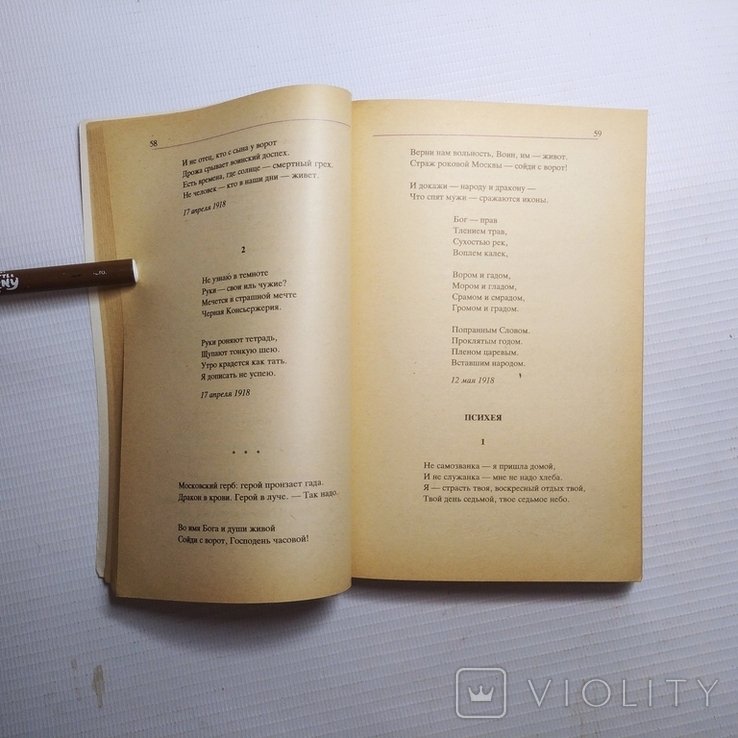 58
И не отец, кто с сына у ворот
Дрожа срывает воинский доспех.
Есть времена, где солнце — смертный грех.
Не человек — кто в наши дни — живет.
17 апреля 1918
2
Не узнаю в темноте
Руки — свои иль чужие?
Мечется в страшной мечте
Черная Консьержерия.
Руки роняют тетрадь,
Щупают тонкую шею.
Утро крадется как тать.
Я дописать не успею.
17 апреля 1918
* * *
Московский герб: герой пронзает гада.
Дракон в крови. Герой в луче. — Так надо.
Во имя Бога и души живой
Сойди с ворот, Господень часовой!
59
Верни нам вольность, Воин, им — живот.
Страж роковой Москвы — сойди с ворот!
И докажи — народу и дракону —
Что спят мужи — сражаются иконы.
Бог — прав
Тлением трав,
Сухостью рек,
Воплем калек,
Вором и гадом,
Мором и гладом,
Срамом и смрадом,
Громом и градом.
Попранным Словом.
Проклятым годом.
Пленом царевым.
Вставшим народом.
12 мая 1918
ПСИХЕЯ
1
Не самозванка — я пришла домой,
И не служанка — мне не надо хлеба.
Я — страсть твоя, воскресный отдых твой,
Твой день седьмой, твое седьмое небо.
VIOLITY